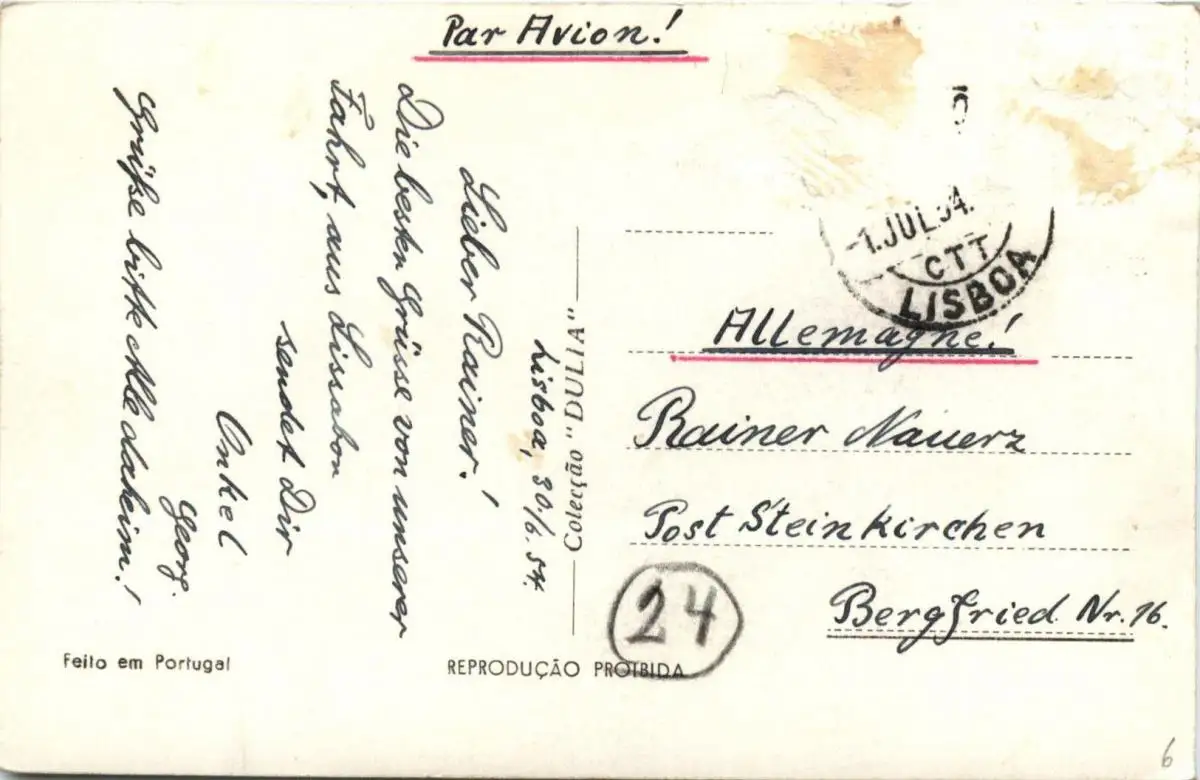 Par Avion!
Lisboa, 30./6. 54.
Lieber Rainer!
Die besten Grüsse von unserer
Fahrt, aus Lissabon
sendet Dir
Onkel
Georg.
Grüße bitte Alle daheim!
Colecção "DULIA"
-1.JUL.54.
CTT
LISBOA
Allemagne!
Rainer Nauerz
Post Steinkirchen
Bergfried Nr. 16.
24
Feito em Portugal
REPRODUÇÃO PROIBIDA
6